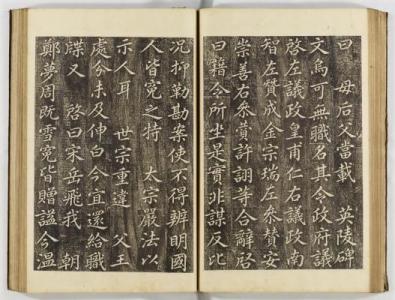 曰 母后父當載 英陵碑
文烏可無職名其令政府議
啓左議政皇甫仁右議政南
智左贊成金宗瑞左參贊安
崇善右參贊許詡等合辭啓
曰籍令所坐是實非謀反比
況抑勒勘案使不得辨明國
人皆冤之特 太宗嚴法以
示人耳 世宗重違 父王
處分未及伸白今宜還給職
牒又 啓曰宋岳飛我 朝
鄭夢周旣雪冤皆贈謚今溫